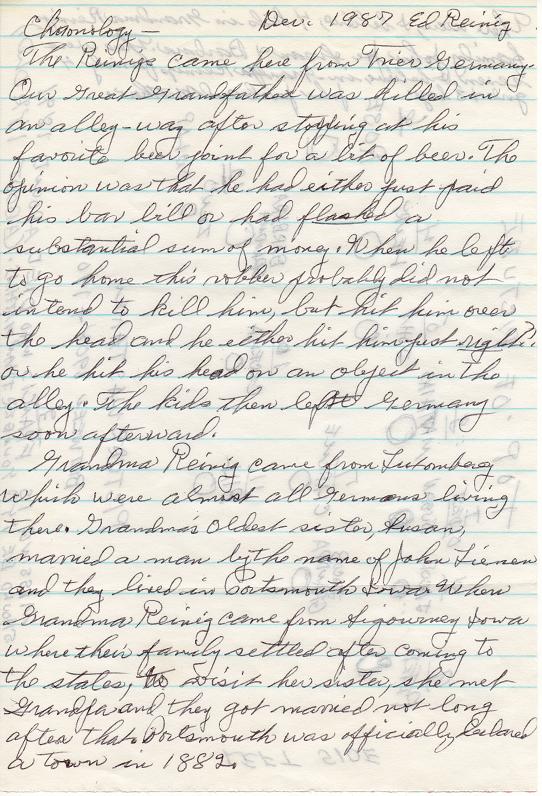 Chronology – Dec. 1987 Ed Reinig
The Reinigs came here from Trier Germany.
Our Great Grandfather was killed in
an alley-way after stopping at his
favorite beer joint for a bit of beer. The
opinion was that he had either just paid
his bar bill or had flashed a
substantial sum of money. When he left
to go home this robber probably did not
intend to kill him, but hit him over
the head and he either hit him just "right"
or he hit his head on an object in the
alley. The kids then left Germany
soon afterward.
Grandma Reinig came from Lutomberg
which were almost all Germans living
there. Grandma's oldest sister, Susan,
married a man by the name of John Liesen
and they lived in Portsmouth Iowa. When
Grandma Reinig came from Sigourney Iowa
where their family settled after coming to
the states, to visit her sister, she met
Grandpa and they got married not long
after that. Portsmouth was officially declared
a town in 1882.